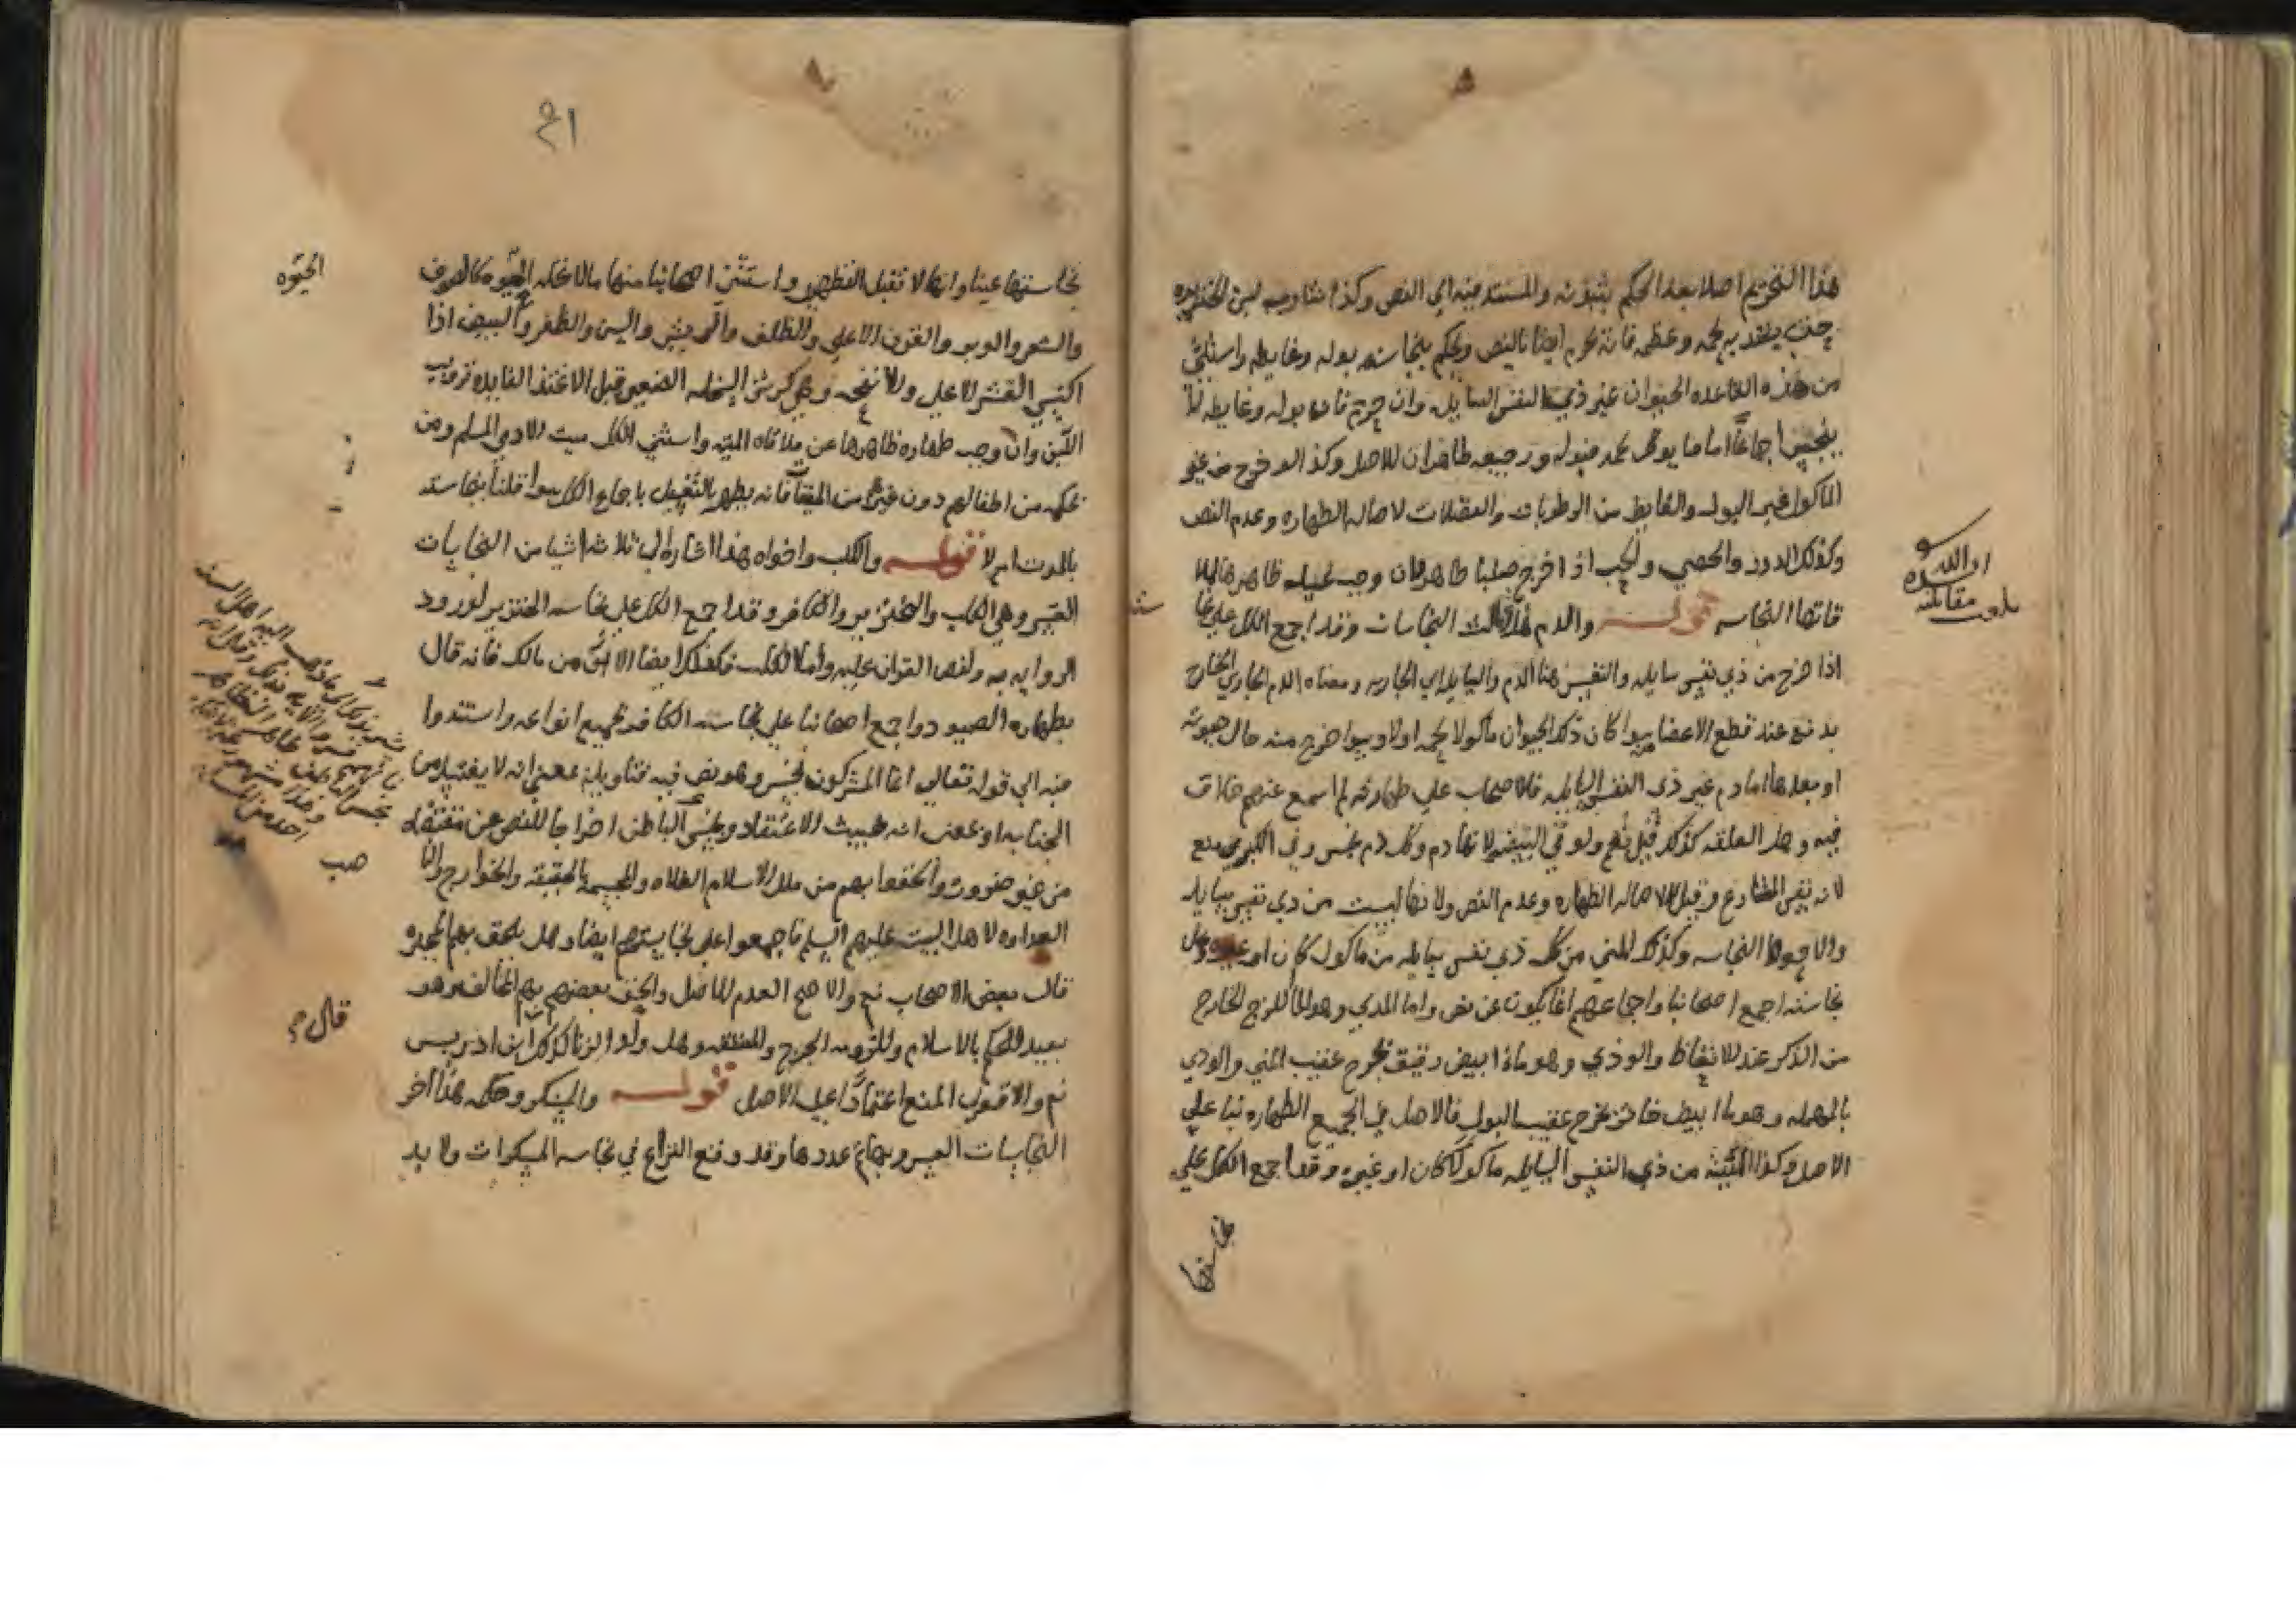 هذا التحريم اصلا بعد الحكم بثبوته والمستند فيه الي النص وكذا شارب لبن الخنزيره
حتي يغتذي به لحمه وعظمه فانه يحرم ايضا بالنص ويحكم بنجاسه بوله وغايطه واستثني
من هذه القاعده الحيوان غير ذي النفس السايله وان حرم فان بوله وغايطه لا
ينجس اجماعا اما ما يوكل لحمه فبوله ورجيعه طاهران للاصل وكذا لو خرج من غير
الماكول غير البول والغايط من الرطوبات والفضلات لاصاله الطهاره وعدم النص
وكذلك الدود والحصي والحب اذا خرج صلبا طاهر وان وجب غسل ظاهرها لملا
قاتها النجاسه قوله والدم هذا ثالث النجاسات وقد اجمع الكل علي نجا سته
اذا خرج من ذي نفس سايله والنفس هنا الدم والسايله اي الجاريه ومعناه الدم الجاري الخارج
بدفع عند قطع الاعضا سوا كان ذلك الحيوان ماكولا لحمه اولا وسوا خرج منه حال حيوته
او بعدها اما دم غير ذي النفس السايله فالاصحاب علي طهارته لم اسمع عنهم خلاف
فيه وهل العلقه كذلك قيل نعم ولو في البيضه لانها دم وكل دم نجس وفي الكبري منع
لانه نفس المتنازع وقيل لا لاصاله الطهاره وعدم النص ولانها ليست من ذي نفس سايله
والاجود النجاسه وكذلك المني من كل ذي نفس سايله من ماكول كان او غيره وعلي
نجاسته اجمع اصحابنا واجماعهم انما يكون عن نص واما المذي وهو الما اللزج الخارج
من الذكر عند الانعاظ والوذي وهو ماء ابيض رقيق يخرج عقيب المني والودي
بالمهمله وهو ما ابيض خاثر يخرج عقيب البول فالاصل في الجميع الطهاره بنا علي
الاصل وكذا الميته من ذي النفس السايله ماكولا كان او غيره وقد اجمع الكل علي
بلغت مقابله
نجا ستها
٢١
نجاستها عينا وانها لا تقبل التطهير واستثني اصحابنا منها مالا تحله الحيوه كالصوف
والشعر والوبر والقرن الاعلي والظلف والريش والسن والظفر والبيض اذا
اكتسي القشر الاعلي والانفحه وهي كرش السخله الصغيره قبل الاغتذا الفايده ترويب
اللبن وان وجب طهاره ظاهرها عن ملاقاه الميته واستثني الكل ميت الادمي المسلم ومن
بحكمه من اطفالهم دون غيره من الميتات فانه يطهر بالتغسيل باجماع الكل سوا قلنا بنجاسته
بالموت ام لا قوله والكلب واخواه هذا اشاره الي ثلاثه اشيا من النجاسات
العشر وهي الكلب والخنزير والكافر وقد اجمع الكل علي نجاسه الخنزير لورود
الروايه به ولنص القران عليه واما الكلب فكذلك ايضا الا من مالك فانه قال
بطهاره الصيود واجمع اصحابنا علي نجاسه الكافر بجميع انواعه واستندوا
فيه الي قوله تعالي انما المشركون نجس وهو نص فيه فتاويله بمعني انه لا يغتسل من
الجنابه او بمعني انه خبيث الاعتقاد ونجس الباطن اخراجا للنص عن مقتضاه
من غير ضروره والحقوا بهم من ملل الاسلام الغلاه والمجسمه بالحقيقه والخوارج والنا
العداوه لاهل البيت عليهم السلم فاجمعوا علي نجاستهم ايضا وهل يلحق بهم المجبره
قال بعض الاصحاب نعم والاصح العدم للاصل والحق بعضهم بهم المخالف وهو
بعيد للحكم بالاسلام وللزوم الحرج والمشقه وهل ولد الزنا كذلك ابن ادريس
نعم والاقوي المنع اعتمادا علي الاصل قوله والمسكر وحكمه هذا اخر
النجاسات العشر وبها تم عددها وقد وقع النزاع في نجاسه المسكرات ولا بد
الحيوه
صب
قال